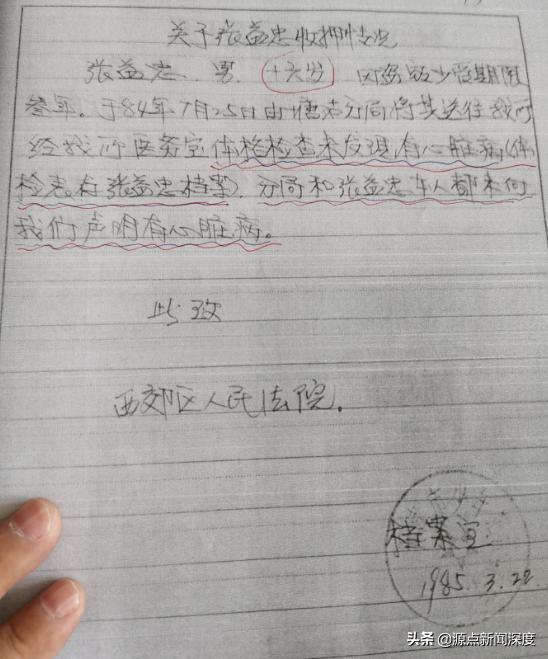 关于张益忠收押情况
张益忠 男 十六岁 因 少管期限
叁年。于84年7月25日由 分局将其送往我所
经我所医务室体格检查未发现有心脏病(体
检表在张益忠档案)。分局和张益忠本人都未向
我们声明有心脏病。
此致
西郊区人民法院.
档案室
1985.3.22
头条 @源点新闻深度